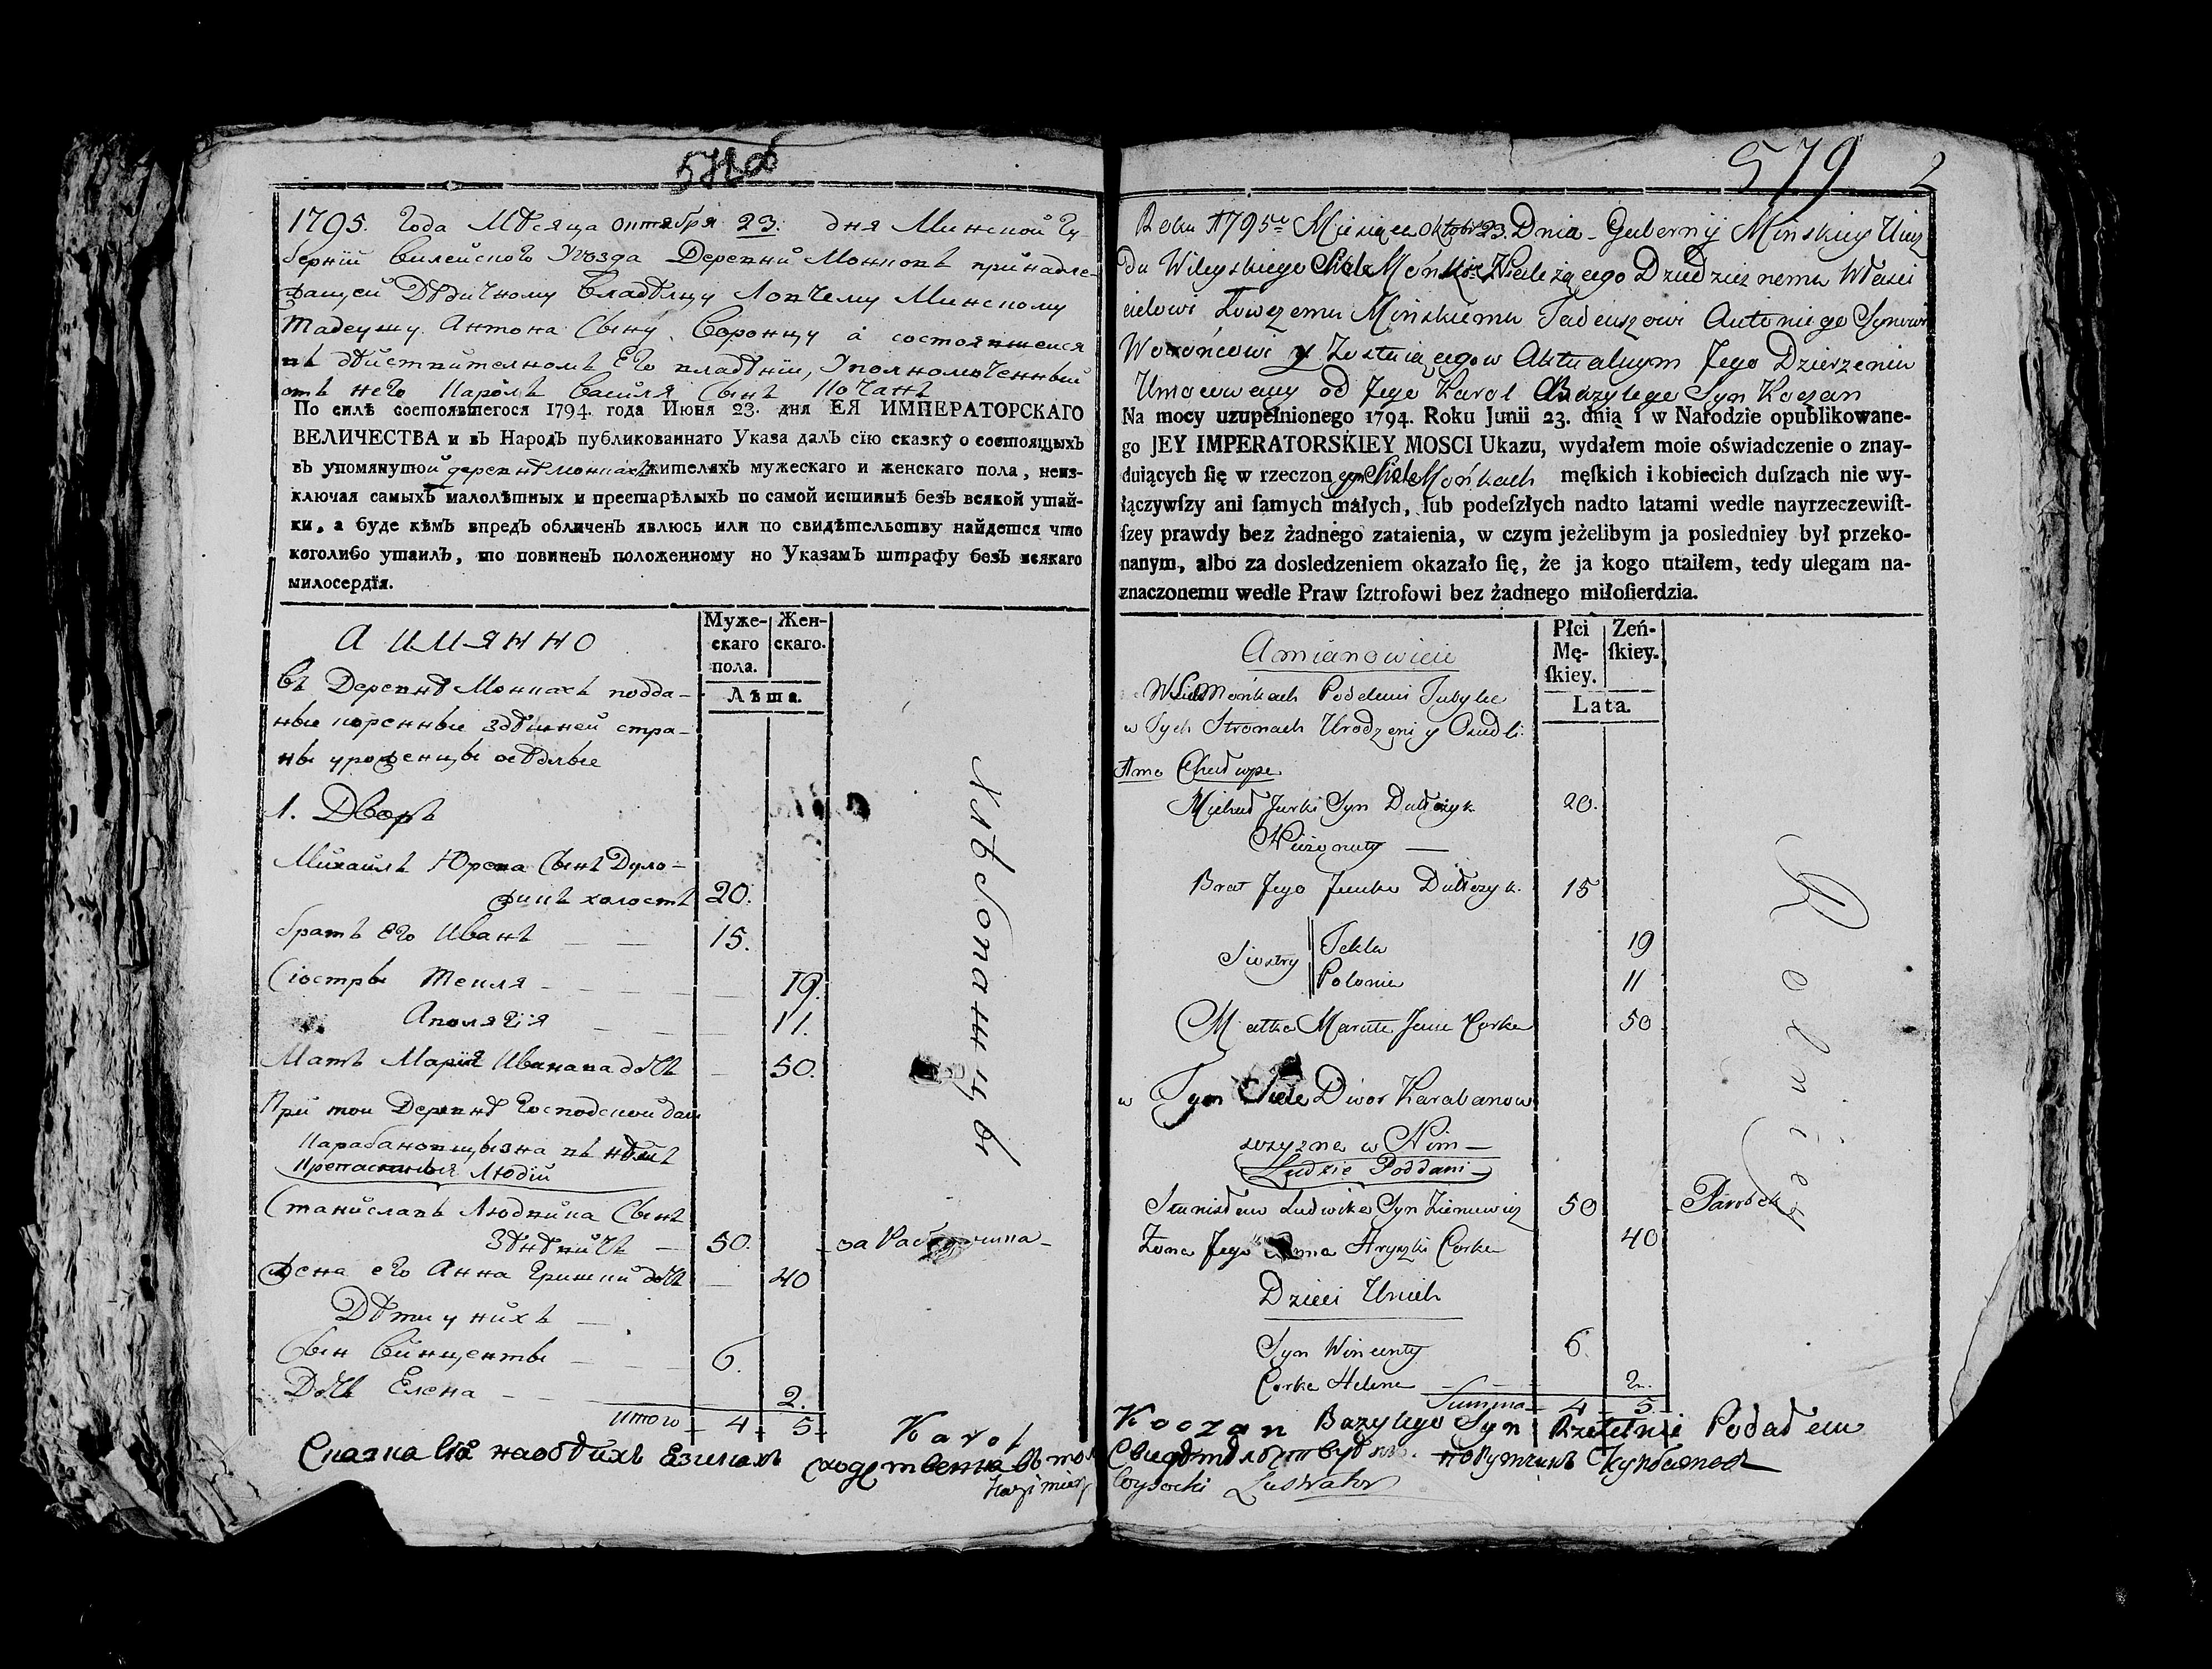 1795. Года Мѣсяца Октября 23. дня Минской Гу-
бернїи Вилейского Уѣзда Деревни Монковъ принадле-
жащей Дѣдичному Владѣлцу Ловчему Минскому
Тадеушу Антона Сыну Воронцу а состоящейся
въ дѣйствителномъ Его владѣнїи, Уполномоченный
отъ него Кароль Василя Сынъ Кочанъ
По силѣ состоявшегося 1794. года Июня 23. дня ЕЯ ИМПЕРАТОРСКАГО
ВЕЛИЧЕСТВА и въ Народъ публикованнаго Указа далъ сїю сказку о состоящыхъ
въ упомянутой деревнѣ Монкахъ жителяхъ мужескаго и женскаго пола, неиз-
ключая самыхъ малолѣтныхъ и престарѣлыхъ по самой истиннѣ безъ всякой утай-
ки, а буде кѣмъ впредъ обличенъ явлюсь или по свидѣтельству найдется что
коголибо утаилъ, то повиненъ положенному по Указамъ штрафу безъ всякаго
милосердїя.
А имянно
Муже-
скаго
пола.
Жен-
скаго.
Лѣта.
Въ Деревнѣ Монкахъ подда-
ные коренные здѣшней стра-
ны уроженцы осѣдлые
1. Дворъ
Михайлъ Юрка Сынъ Дуло-
жикъ холостъ 20.
братъ Его Иванъ 15.
Сїостры Текля 19.
Аполягїя 11.
Мать Марїя Иванава дочь 50.
При той Деревнѣ Господской
Карабановщызна въ нѣмъ
Людїй
Станиславъ Людвика Сынъ
Зѣнѣвичъ 50.
Жена его Анна Гришки дочь 40
Дѣти у нихъ
Сын Винценты 6.
Дочь Елена 2.
итого 4 5
Хлѣбопашцы
за
578
579 2
Roku 1795 Miesiąca Oktobra 23. Dnia Guberny Minskiey Uiez
du Wileyskiego Sioła Mońkow Należącego Dziedzicznemu Właści
cielowi Łowczemu Mińskiemu Tadeuszowi Antoniego Synowi
Worońcowi y Zostaiącego w Aktualnym Jego Dzierżeniu
Umocowany od Jego Karol Bazylego Syn Koczan
Na mocy uzupełnionego 1794. Roku Junii 23. dnią i w Narodzie opublikowane-
go JEY IMPERATORSKIEY MOSCI Ukazu, wydałem moie oświadczenie o znay-
duiących ſię w rzeczonym Siole Mońkach męſkich i kobiecich duſzach nie wy-
łączywſzy ani ſamych małych, lub podeſzłych nadto latami wedle nayrzeczewiſt-
ſzey prawdy bez żadnego zataienia, w czym jeżelibym ja posledniey był przeko-
nanym, albo za dosledzeniem okazało ſię, że ja kogo utaiłem, tedy ulegam na-
znaczonemu wedle Praw ſztrofowi bez żadnego miłoſierdzia.
Amianowicie
Płci
Mę-
ſkiey.
Zeń-
ſkiey.
Lata.
Mońkach Poddani Tubylce
w Tych Stronach Urodzeni y Osiedli
1mo Chałupa
Michał Jurki Syn Dułożyk 20.
Nieżonaty
Brat Jego Janka Dułożyk. 15
Siostry Tekla 19
Polonia 11
Matka Maruta Jana Corka 50
w Tym Siele Dwor Karabanow
szczyzna w Nim
Ludzie Poddani
Stanisław Ludwika Syn Zieniewicz 50 Parobek
Żona Jego Anna Hryszki Corka 40
Dzieci Unich
Syn Wincenty 6.
Corka Helena 2.
Summa 4 5
Rolnicy
Karol Koczan Bazylego Syn Rzetelnie Podałem
Сказка сїя наобѣихъ Езикахъ сходственна Въ том Свидѣтельствую порутчикъ
Kazimierz Wysocki Lustrator